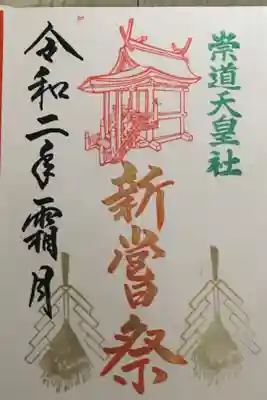 崇道天皇社
新嘗祭
令和二年霜月